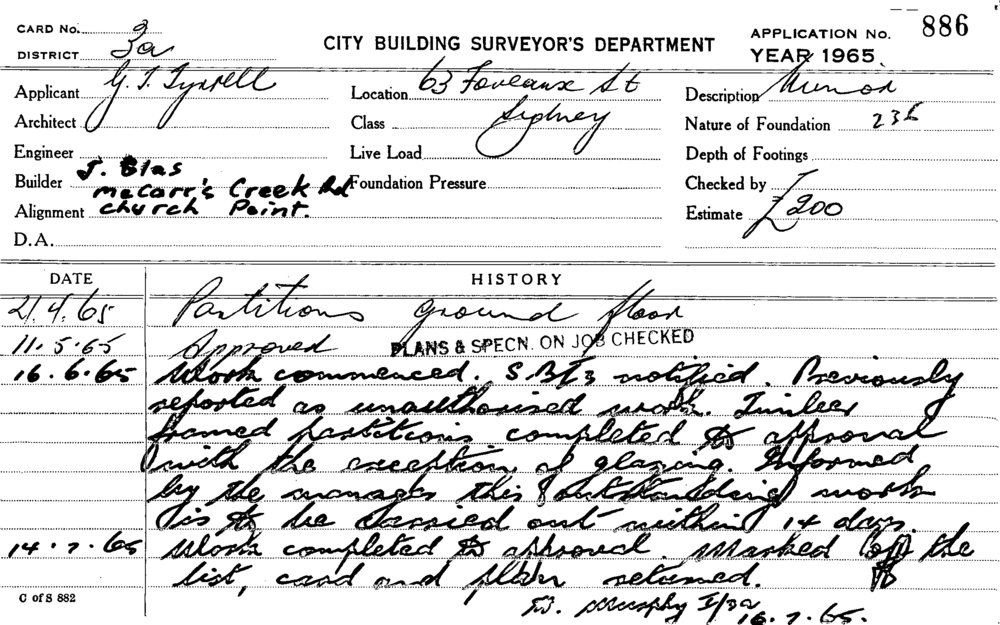 CARD No. 3
DISTRICT 3a
CITY BUILDING SURVEYOR'S DEPARTMENT
APPLICATION No. 886
YEAR 1965.
Applicant G. T. Tyrrell
Location 63 Foveaux St
Description Minor
Architect
Class Sydney
Nature of Foundation 236
Engineer
Live Load
Depth of Footings
Builder J. Blas
McCarr's Creek Rd
Foundation Pressure
Checked by
Alignment Church Point.
Estimate £200
D.A.
DATE HISTORY
21.4.65 Partitions ground floor
11.5.65 Approved PLANS & SPECN. ON JOB CHECKED
16.6.65 Work commenced. S.B.I3 notified. Previously
reported as unauthorised work. Timber
framed partitions completed to approval
with the exception of glazing. Informed
by the manager this outstanding work
is to be carried out within 14 days.
14.7.65 Work completed to approval. Marked off the
list, card and plan returned.
C of S 882
Murphy I/3a
16.7.65.